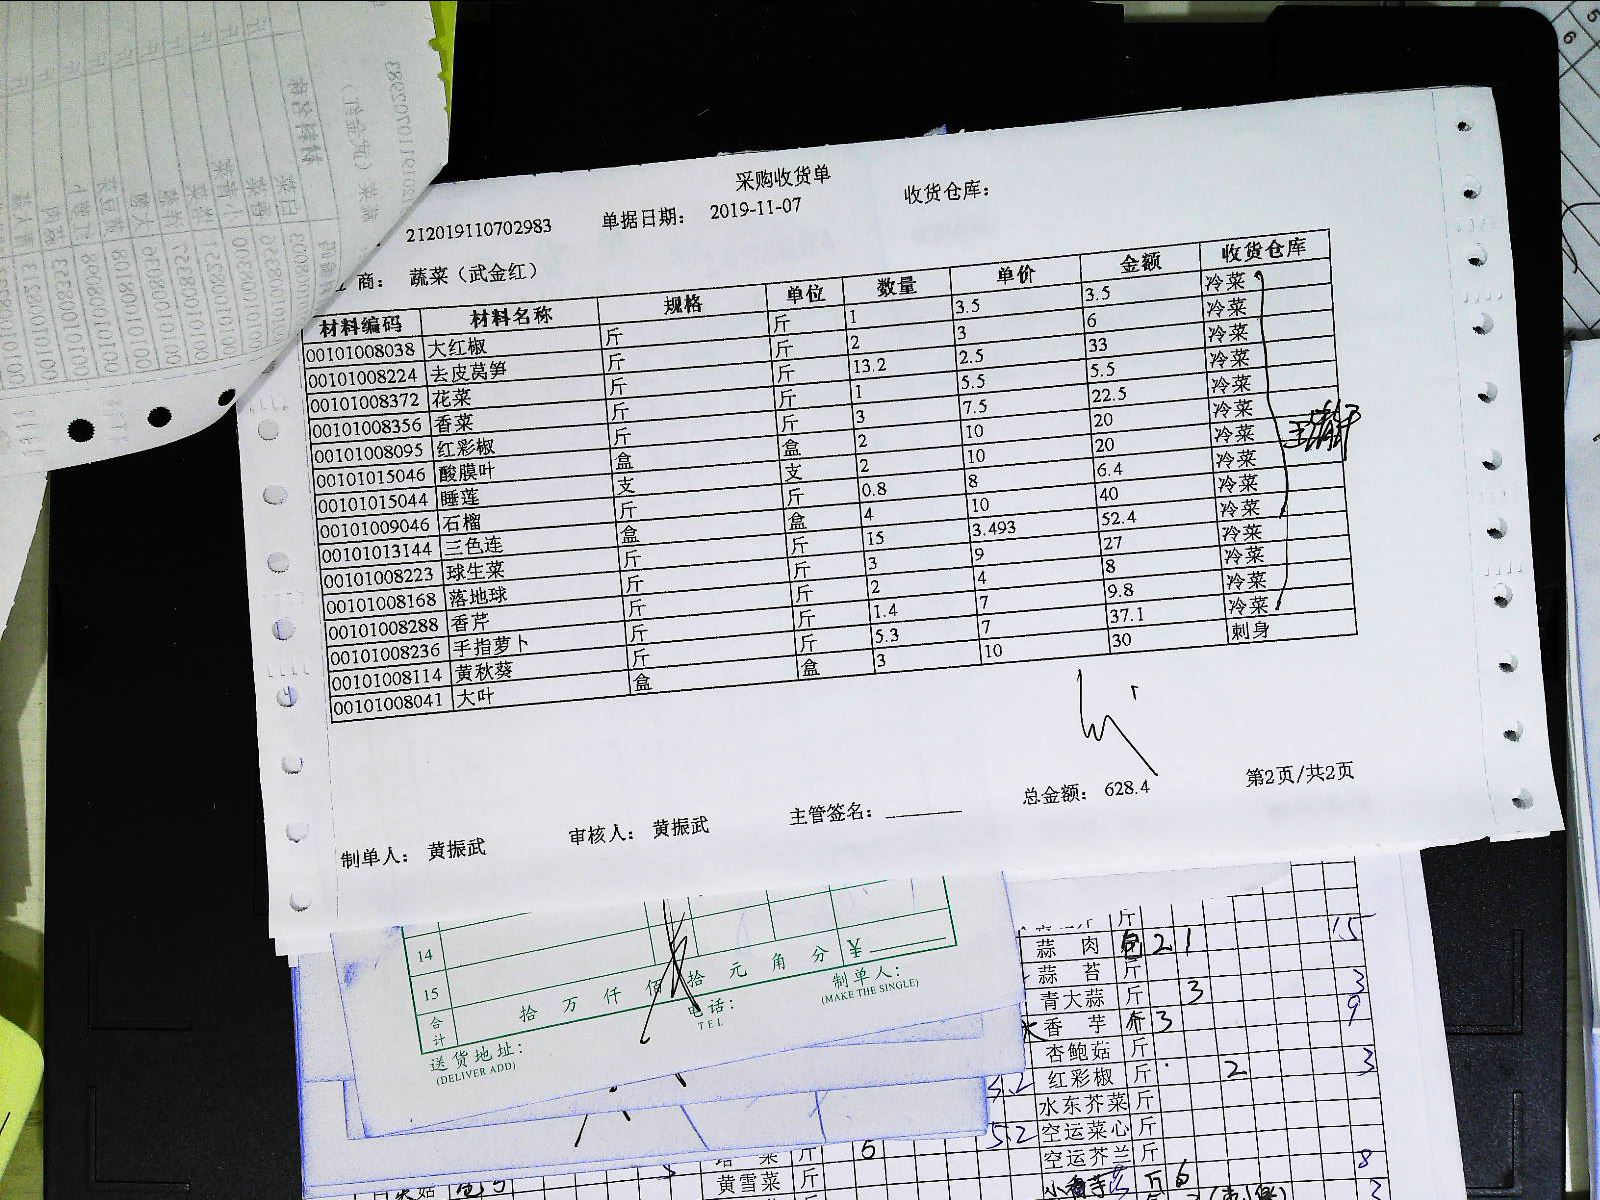 采购收货单
212019110702983 单据日期: 2019-11-07 收货仓库:
商: 蔬菜（武金红）
材料编码 材料名称 规格 单位 数量 单价 金额 收货仓库
00101008038 大红椒 斤 斤 1 3.5 3.5 冷菜
00101008224 去皮莴笋 斤 斤 2 3 6 冷菜
00101008372 花菜 斤 斤 13.2 2.5 33 冷菜
00101008356 香菜 斤 斤 1 5.5 5.5 冷菜
00101008095 红彩椒 斤 斤 3 7.5 22.5 冷菜
00101015046 酸膜叶 盒 盒 2 10 20 冷菜
00101015044 睡莲 支 支 2 10 20 冷菜
00101009046 石榴 斤 斤 0.8 8 6.4 冷菜
00101013144 三色连 盒 盒 4 10 40 冷菜
00101008223 球生菜 斤 斤 15 3.493 52.4 冷菜
00101008168 落地球 斤 斤 3 9 27 冷菜
00101008288 香芹 斤 斤 2 4 8 冷菜
00101008236 手指萝卜 斤 斤 1.4 7 9.8 冷菜
00101008114 黄秋葵 斤 斤 5.3 7 37.1 冷菜
00101008041 大叶 盒 盒 3 10 30 刺身
总金额: 628.4 第2页/共2页
制单人: 黄振武 审核人: 黄振武 主管签名:
14
15
合计 拾 万 仟 佰 拾 元 角 分 ¥
送货地址: 电话: 制单人:
(DELIVER ADD) TEL (MAKE THE SINGLE)
蒜 肉 21 15
蒜 苔 斤
青大蒜 斤 3 3
香 芋 斤 3 9
杏鲍菇 斤
红彩椒 斤 2 3
水东芥菜 斤
5.2 空运菜心 斤
空运芥兰 斤 8
黄雪菜 斤